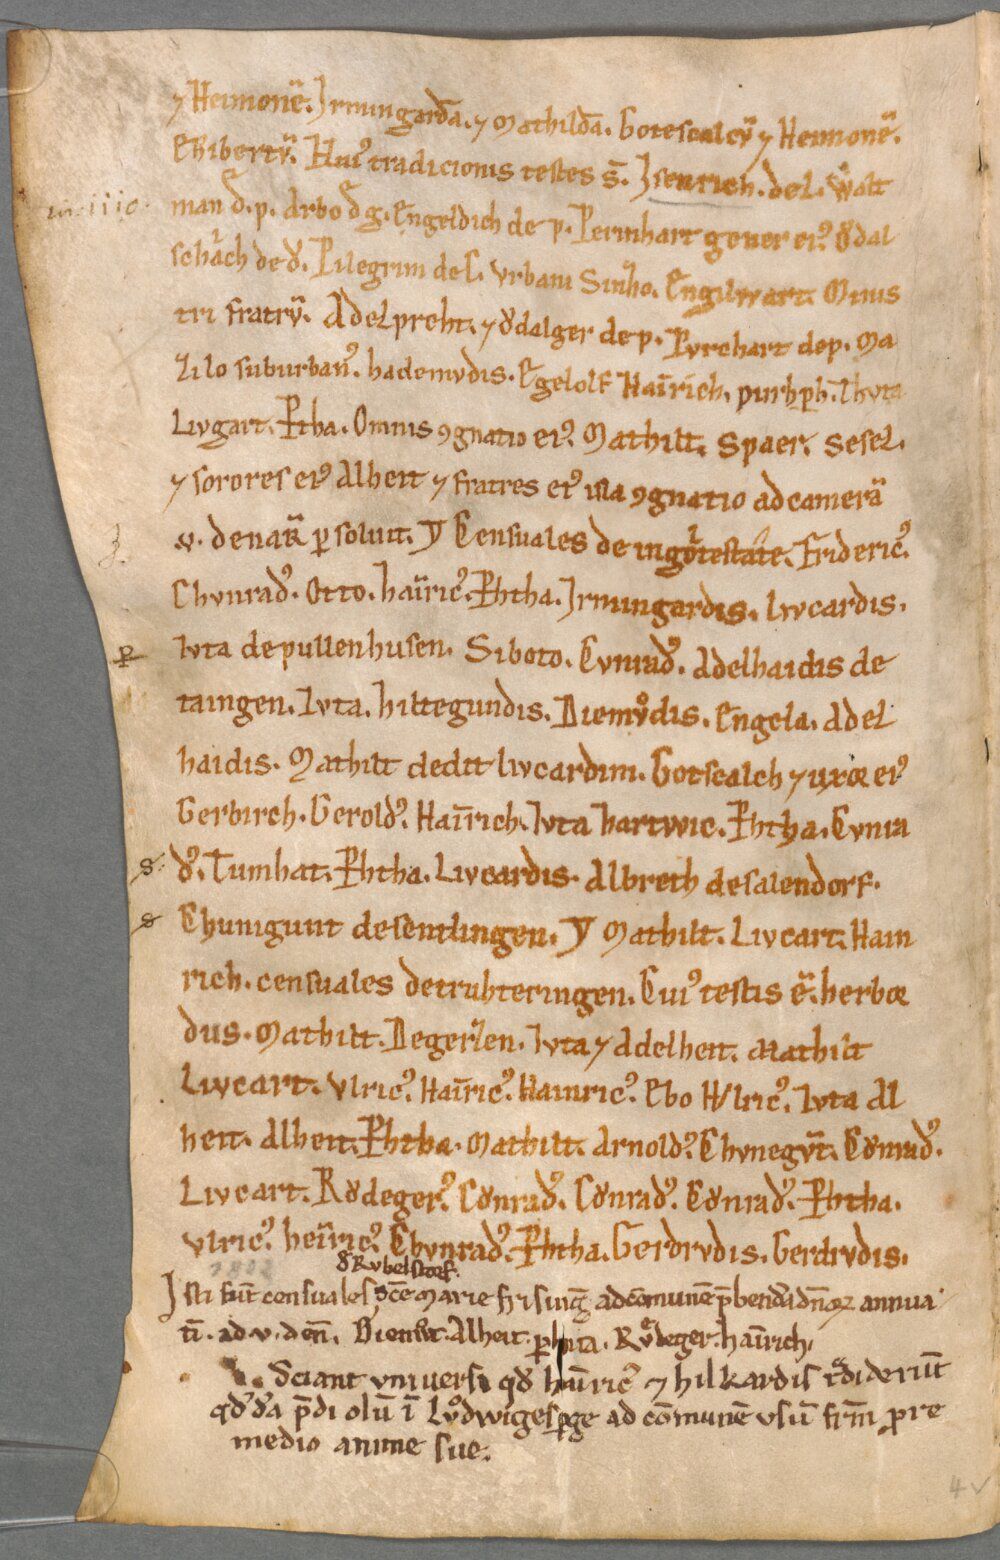 ⁊ Heimonē. Irmingardā. ⁊ Mathildā. Gotescalcū ⁊ Heimonē.
Ekibertū. Huiꝰ tradicionis testes s̄. Isenrich. de L. Walt
man d̄. p. Arbo d̄ g. Engeldich de p. Perinhart gener eiꝰ. Ȣdal
schach de Ȣ. Pilegrim de L. Vrbani Sinho. Engilwart. Minis
tri fratrū. Adelpreht. ⁊ Ȣdalger de p. Pvrchart de p. Ma
zilo suburbanꝰ. hademvdis. Egelolf Hainrich.
Livgart. P̄htha. Omnis ꝯgnatio eiꝰ. Mathilt. Spaer. Sesel.
⁊ sorores eiꝰ Alheit ⁊ fratres eiꝰ ista ꝯgnatio ad camerā
.v. denar̄ ꝑsoluit. Censuales de Fridericꝰ.
Chvnradꝰ. Otto. hainricꝰ. P̄htha. Irmingardis. Livcardis.
Ivta de pullenhusen. Siboto. Cvnradꝰ. Adelhaidis de
taingen. Ivta. hiltegundis. Diemv̊dis. Engela. Adel
haidis. Mathilt dedit livcardim. Gotscalch ⁊ uxor eiꝰ
Gerbirch. Geroldꝰ. Hainrich. Ivta hartwic. P̄htha. Cvnra
dꝰ. Tumhat. P̄htha. Livcardis. Albreth de salendorf.
Chunigunt de sentlingen. Mathilt. Livcart. Hain
rich. censuales de truhteringen. Cuiꝰ testis ē. herbor
dus. Mathilt. Degerlen. Ivta ⁊ Adelheit. Mathilt
Livcart. Vlricꝰ. Hainricꝰ. Hainricꝰ. Ebo Hlricꝰ. Ivta Al
heit. Alheit. P̄htha. Mathilt. Arnoldꝰ. Chvnegūt. Cȣnradꝰ.
Livcart. Rȣdegerꝰ. Cȣnradꝰ. Cȣnradꝰ. Cȣnradꝰ. P̄htha.
Vlricꝰ. heinricꝰ. Chvnradꝰ. P̄htha. Gerdrvdis. Gerdrvdis.
d̄ Rvbelstorf.
Isti sūt censuales sc̄e Marie frisinḡ ad cōmunē p̄bendā dn̄oꝝ annua
ti. ad .v. den̄. Diemvt. Alheit. Rv̊deger. hainrich.
Sciant vniuersi qd̄ hainricꝰ ⁊ hilkardis t̄diderūt
qd̄dā p̄diolū ī Lv̊dwigesꝑge ad cōmunē vsū frm̄ ꝓ re
medio anime sue.